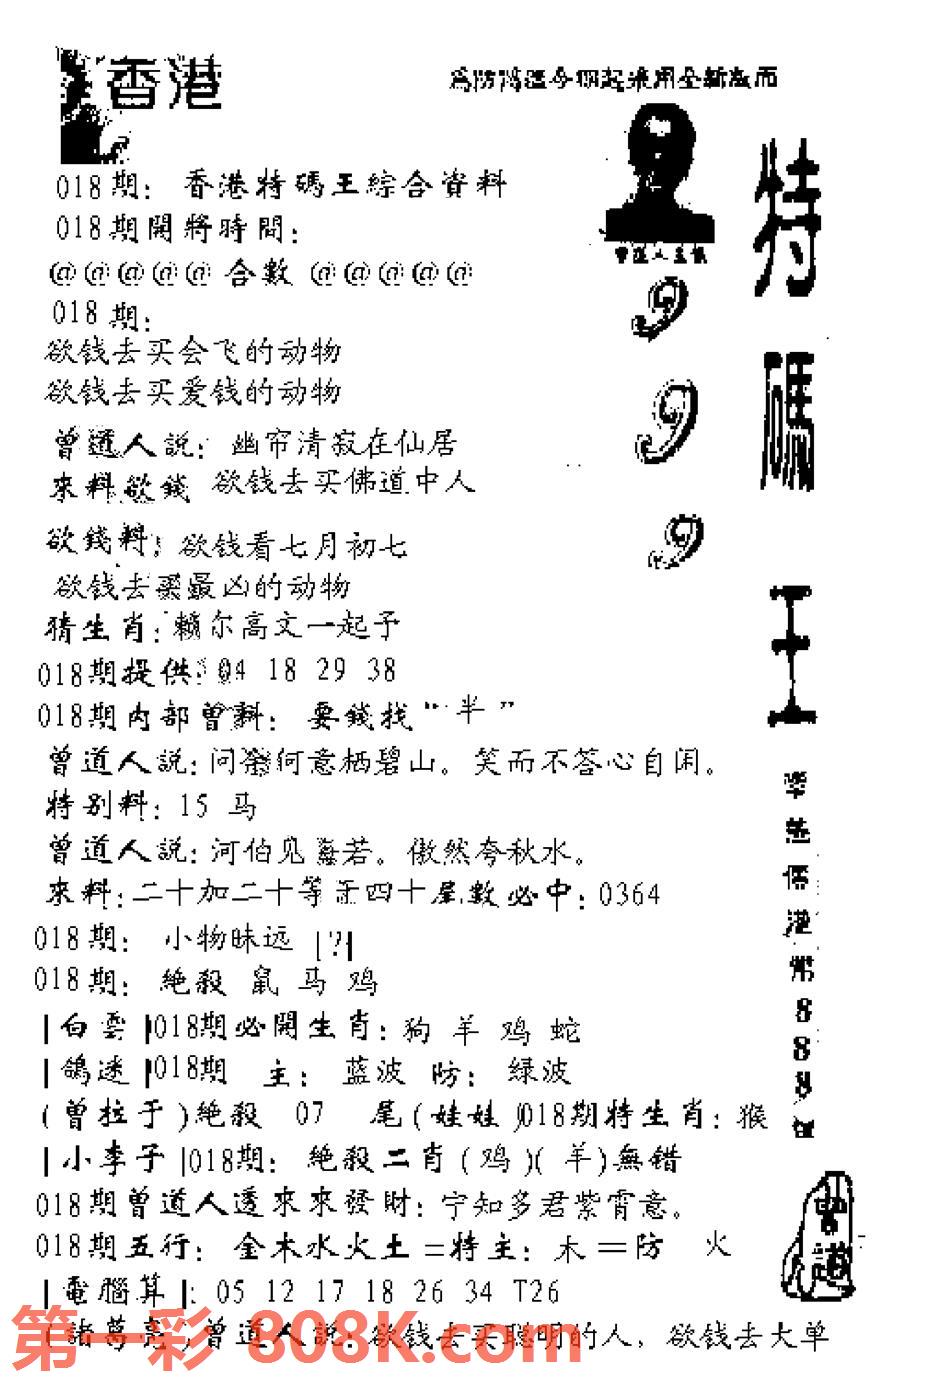 香港
018期：香港特碼王綜合資料
018期開將時間：
@@@@@合數@@@@@
018期：
欲钱去买会飞的动物
欲钱去买爱钱的动物
曾道人説：幽帘清寂在仙居
來料欲錢 欲钱去买佛道中人
欲錢料：欲钱看七月初七
欲钱去买最凶的动物
猜生肖：尔高文一起予
018期提供：04 18 29 38
018期内部曾料：要錢找“半”
曾道人説：问何意栖碧山。笑而不答心自闲。
特别料：15 马
曾道人説：河伯见海若。傲然夸秋水。
來料：二十加二十等于四十尾數必中：0364
018期：小物昧远 |?|
018期：絶殺 鼠 马 鸡
|白雲|018期必開生肖：狗 羊 鸡 蛇
|鴿迷|018期 主：蓝波 防：绿波
(曾拉于)絶殺 07 尾(娃娃)018期特生肖：猴
|小李子|018期：絶殺二肖(鸡)(羊)無错
018期曾道人透來來發財：宁知多君紫霄意。
018期五行：金木水火土=特主：木=防 火
|電腦算|：05 12 17 18 26 34 T26
(諸葛亮)曾道人説：欲钱去买聪明的人，欲钱去大单
第一彩 808K.com
特碼王
999
888
曾道